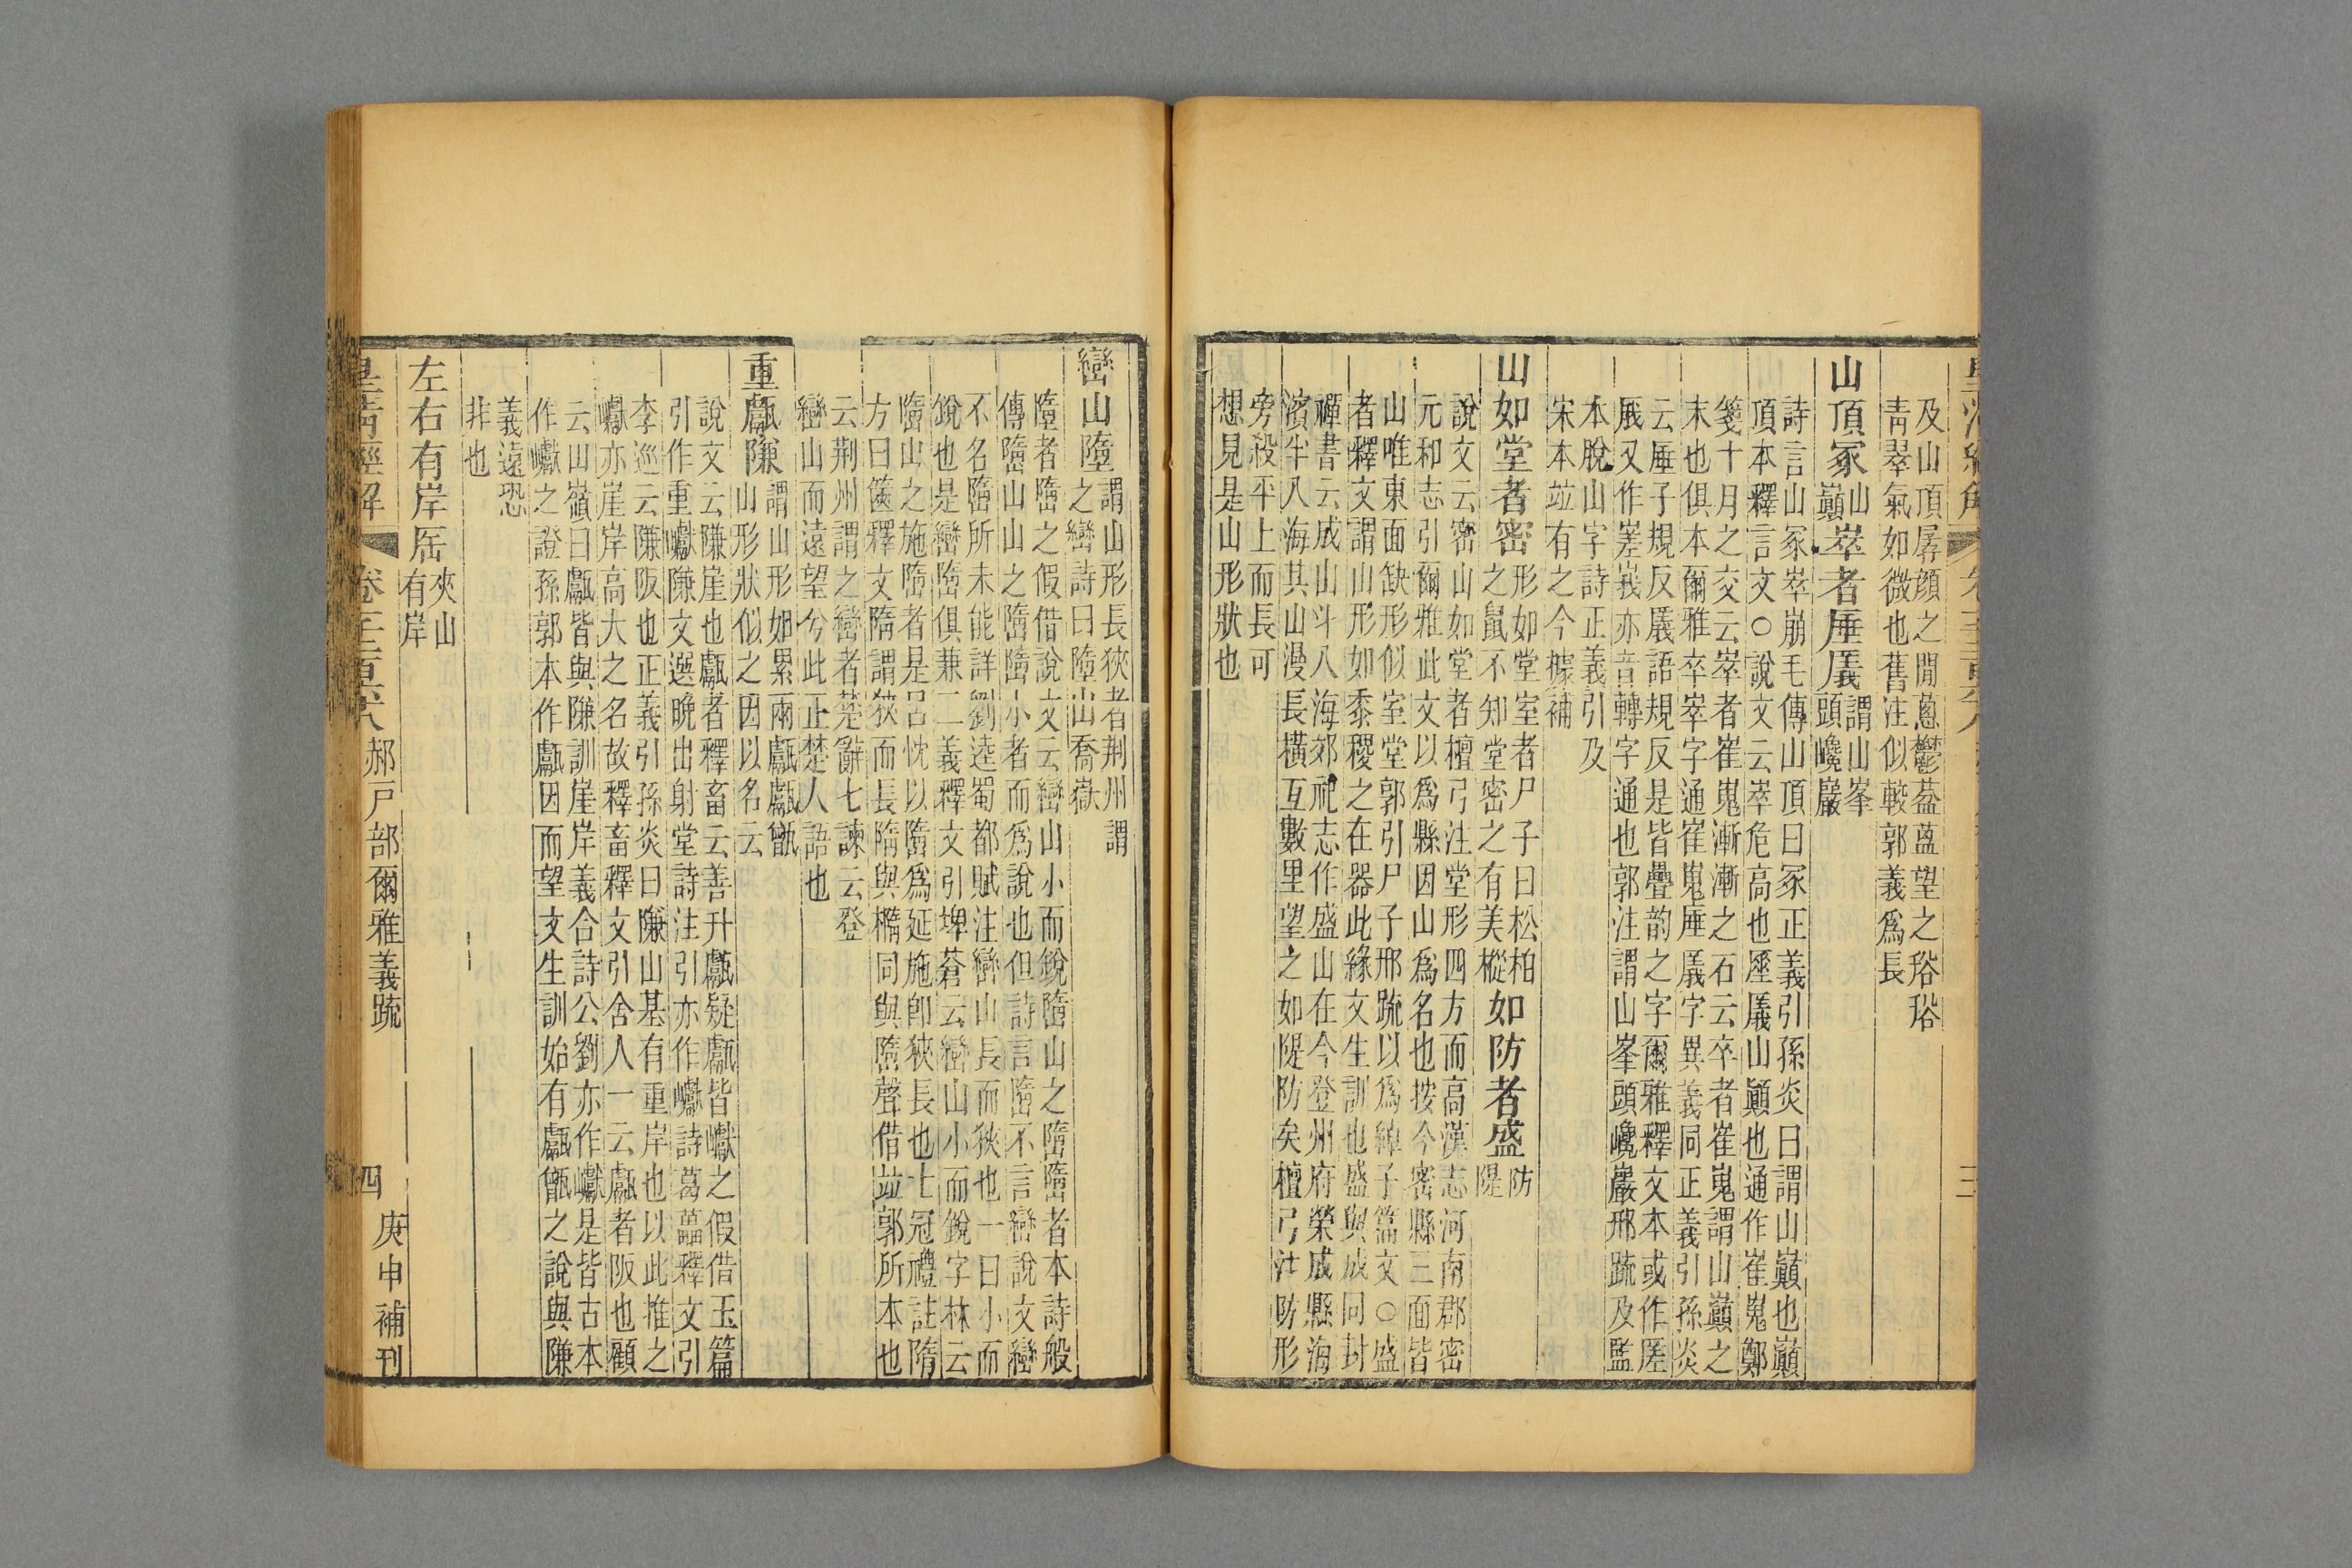 及山頂孱顏之閒蔥鬱葢葐望之谸谸
青翠氣如微也舊注似較郭義爲長
山頂冢山巔崒者厜㕒謂山峯頭巉巖
詩言山冢崒崩毛傳山頂曰冢正義引孫炎曰謂山巔也巔
頂本釋言文○說文云崒危高也厜㕒山顚也通作崔嵬鄭
箋十月之交云崒者崔嵬漸漸之石云卒者崔嵬謂山巔之
末也俱本爾雅卒崒字通崔嵬厜㕒字異義同正義引孫炎
云厜子規反㕒語規反是皆疊韵之字爾雅釋文本或作厓
厎又作嵳峩亦音轉字通也郭注謂山峯頭巉巖邢疏及監
本脫山字詩正義引及
宋本竝有之今據補
山如堂者密形如堂室者尸子曰松柏之鼠不知堂密之有美樅如防者盛防隄
說文云密山如堂者檀弓注堂形四方而高漢志河南郡密
元和志引爾雅此文以爲縣因山爲名也按今密縣三面皆
山唯東面缺形似室堂郭引尸子邢疏以爲綽子篇文○盛
者釋文謂山形如黍稷之在器此緣文生訓也盛與成同封
禪書云成山斗八海郊祀志作盛山在今登州府榮成縣海
濱半八海其山漫長橫亙數里望之如隄防矣檀弓注防形
旁殺平上而長可
想見是山形狀也
巒山墮謂山形長狹者荆州謂之巒詩曰墮山喬嶽
墮者隓之假借說文云巒山小而銳隓山之隓隓者本詩般
傳隓山山之隓隓小者而爲說也但詩言隓不言巒說文巒
不名隓所未能詳劉逵蜀都賦注巒山長而狹也一曰小而
銳也是巒隓俱兼二義釋文引埤蒼云巒山小而銳字林云
隓山之施隓者是呂忱以隓爲延施卽狹長也士冠禮註隋
方曰篋釋文隋謂狹而長隋與橢同與隓聲借竝郭所本也
云荆州謂之巒者楚辭七諫云登
巒山而遠望兮此正楚人語也
重甗隒謂山形如累兩甗甗甑山形狀似之因以名云
說文云隒崖也甗者釋畜云善升甗疑甗皆巘之假借玉篇
引作重巘隒文選晚出射堂詩注引亦作巘詩葛藟釋文引
李巡云隒阪也正義引孫炎曰隒山基有重岸也以此推之
巘亦崖岸高大之名故釋畜釋文引舍人一云甗者阪也顧
云山嶺曰甗皆與隒訓崖岸義合詩公劉亦作巘是皆古本
作巘之證孫郭本作甗因而望文生訓始有甗甑之說與隒
義遠恐
非也
左右有岸厒夾山有岸
皇淸經解 卷千二百六八 郝戸部爾雅義疏 四 庚申補刊